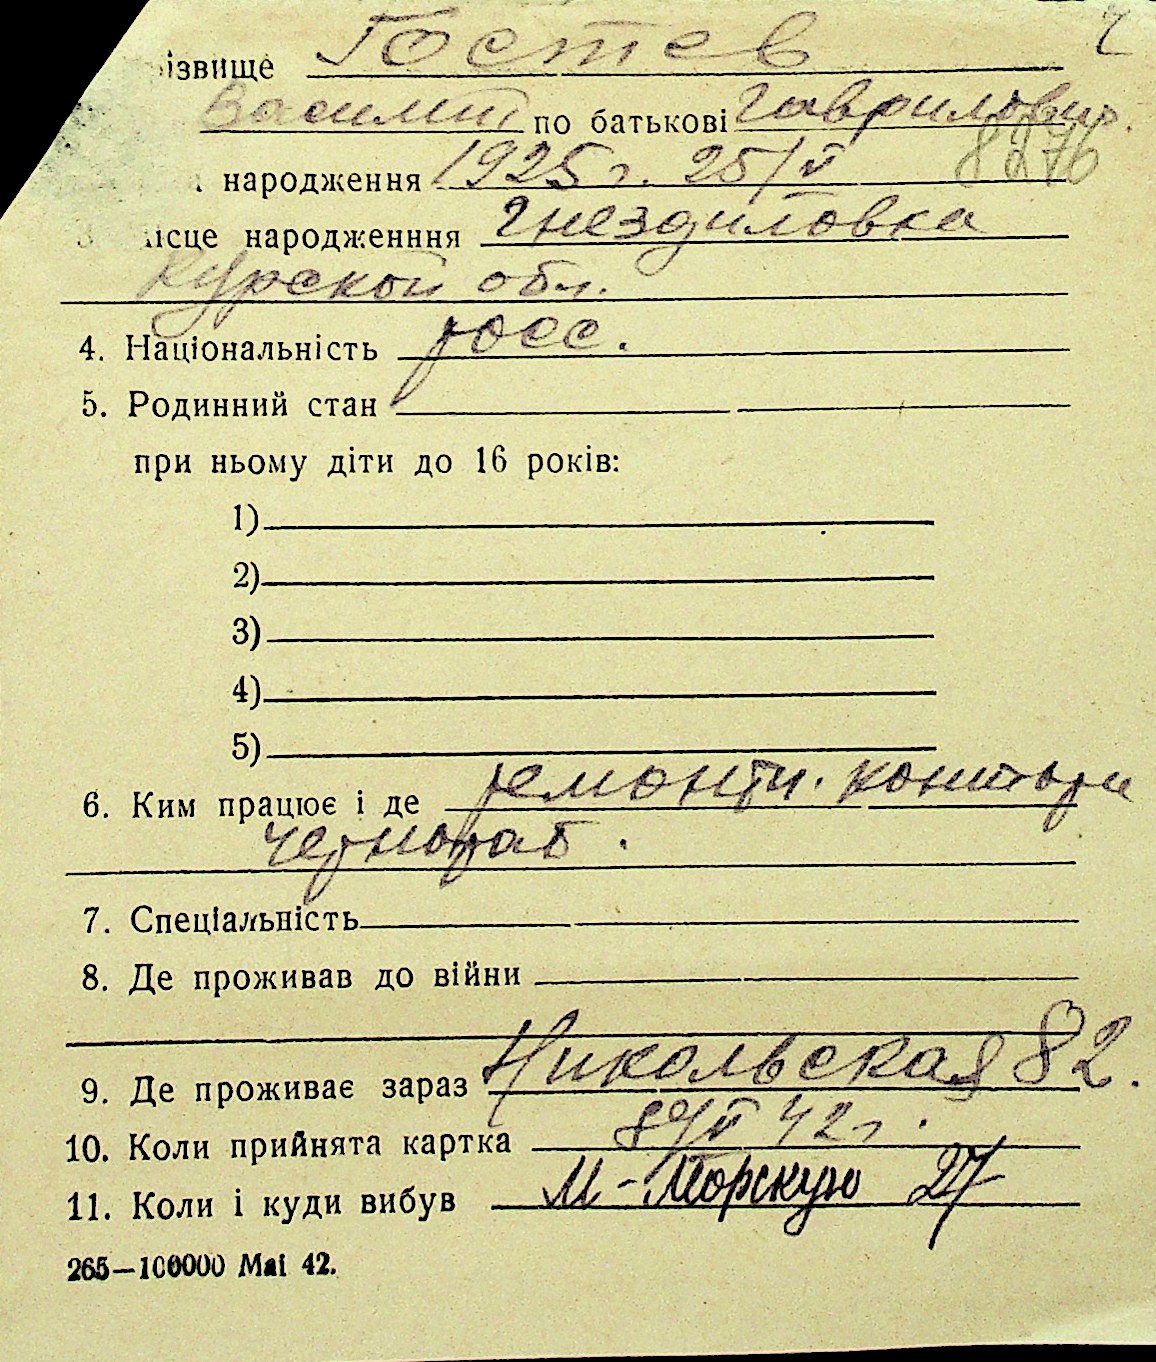 ізвище Гостев
Василий по батькові Гаврилович.
народження 1925 г. 25/V 8276
ісце народженння Гнездиловка
Курской обл.
4. Національність росс.
5. Родинний стан
при ньому діти до 16 років:
1)
2)
3)
4)
5)
6. Ким працює і де ремонтн. конторы
чернораб.
7. Спеціальність
8. Де проживав до війни
9. Де проживає зараз Никольская 82.
10. Коли прийнята картка 42 г.
11. Коли і куди вибув М-Морскую 27
265—100000 Mai 42.